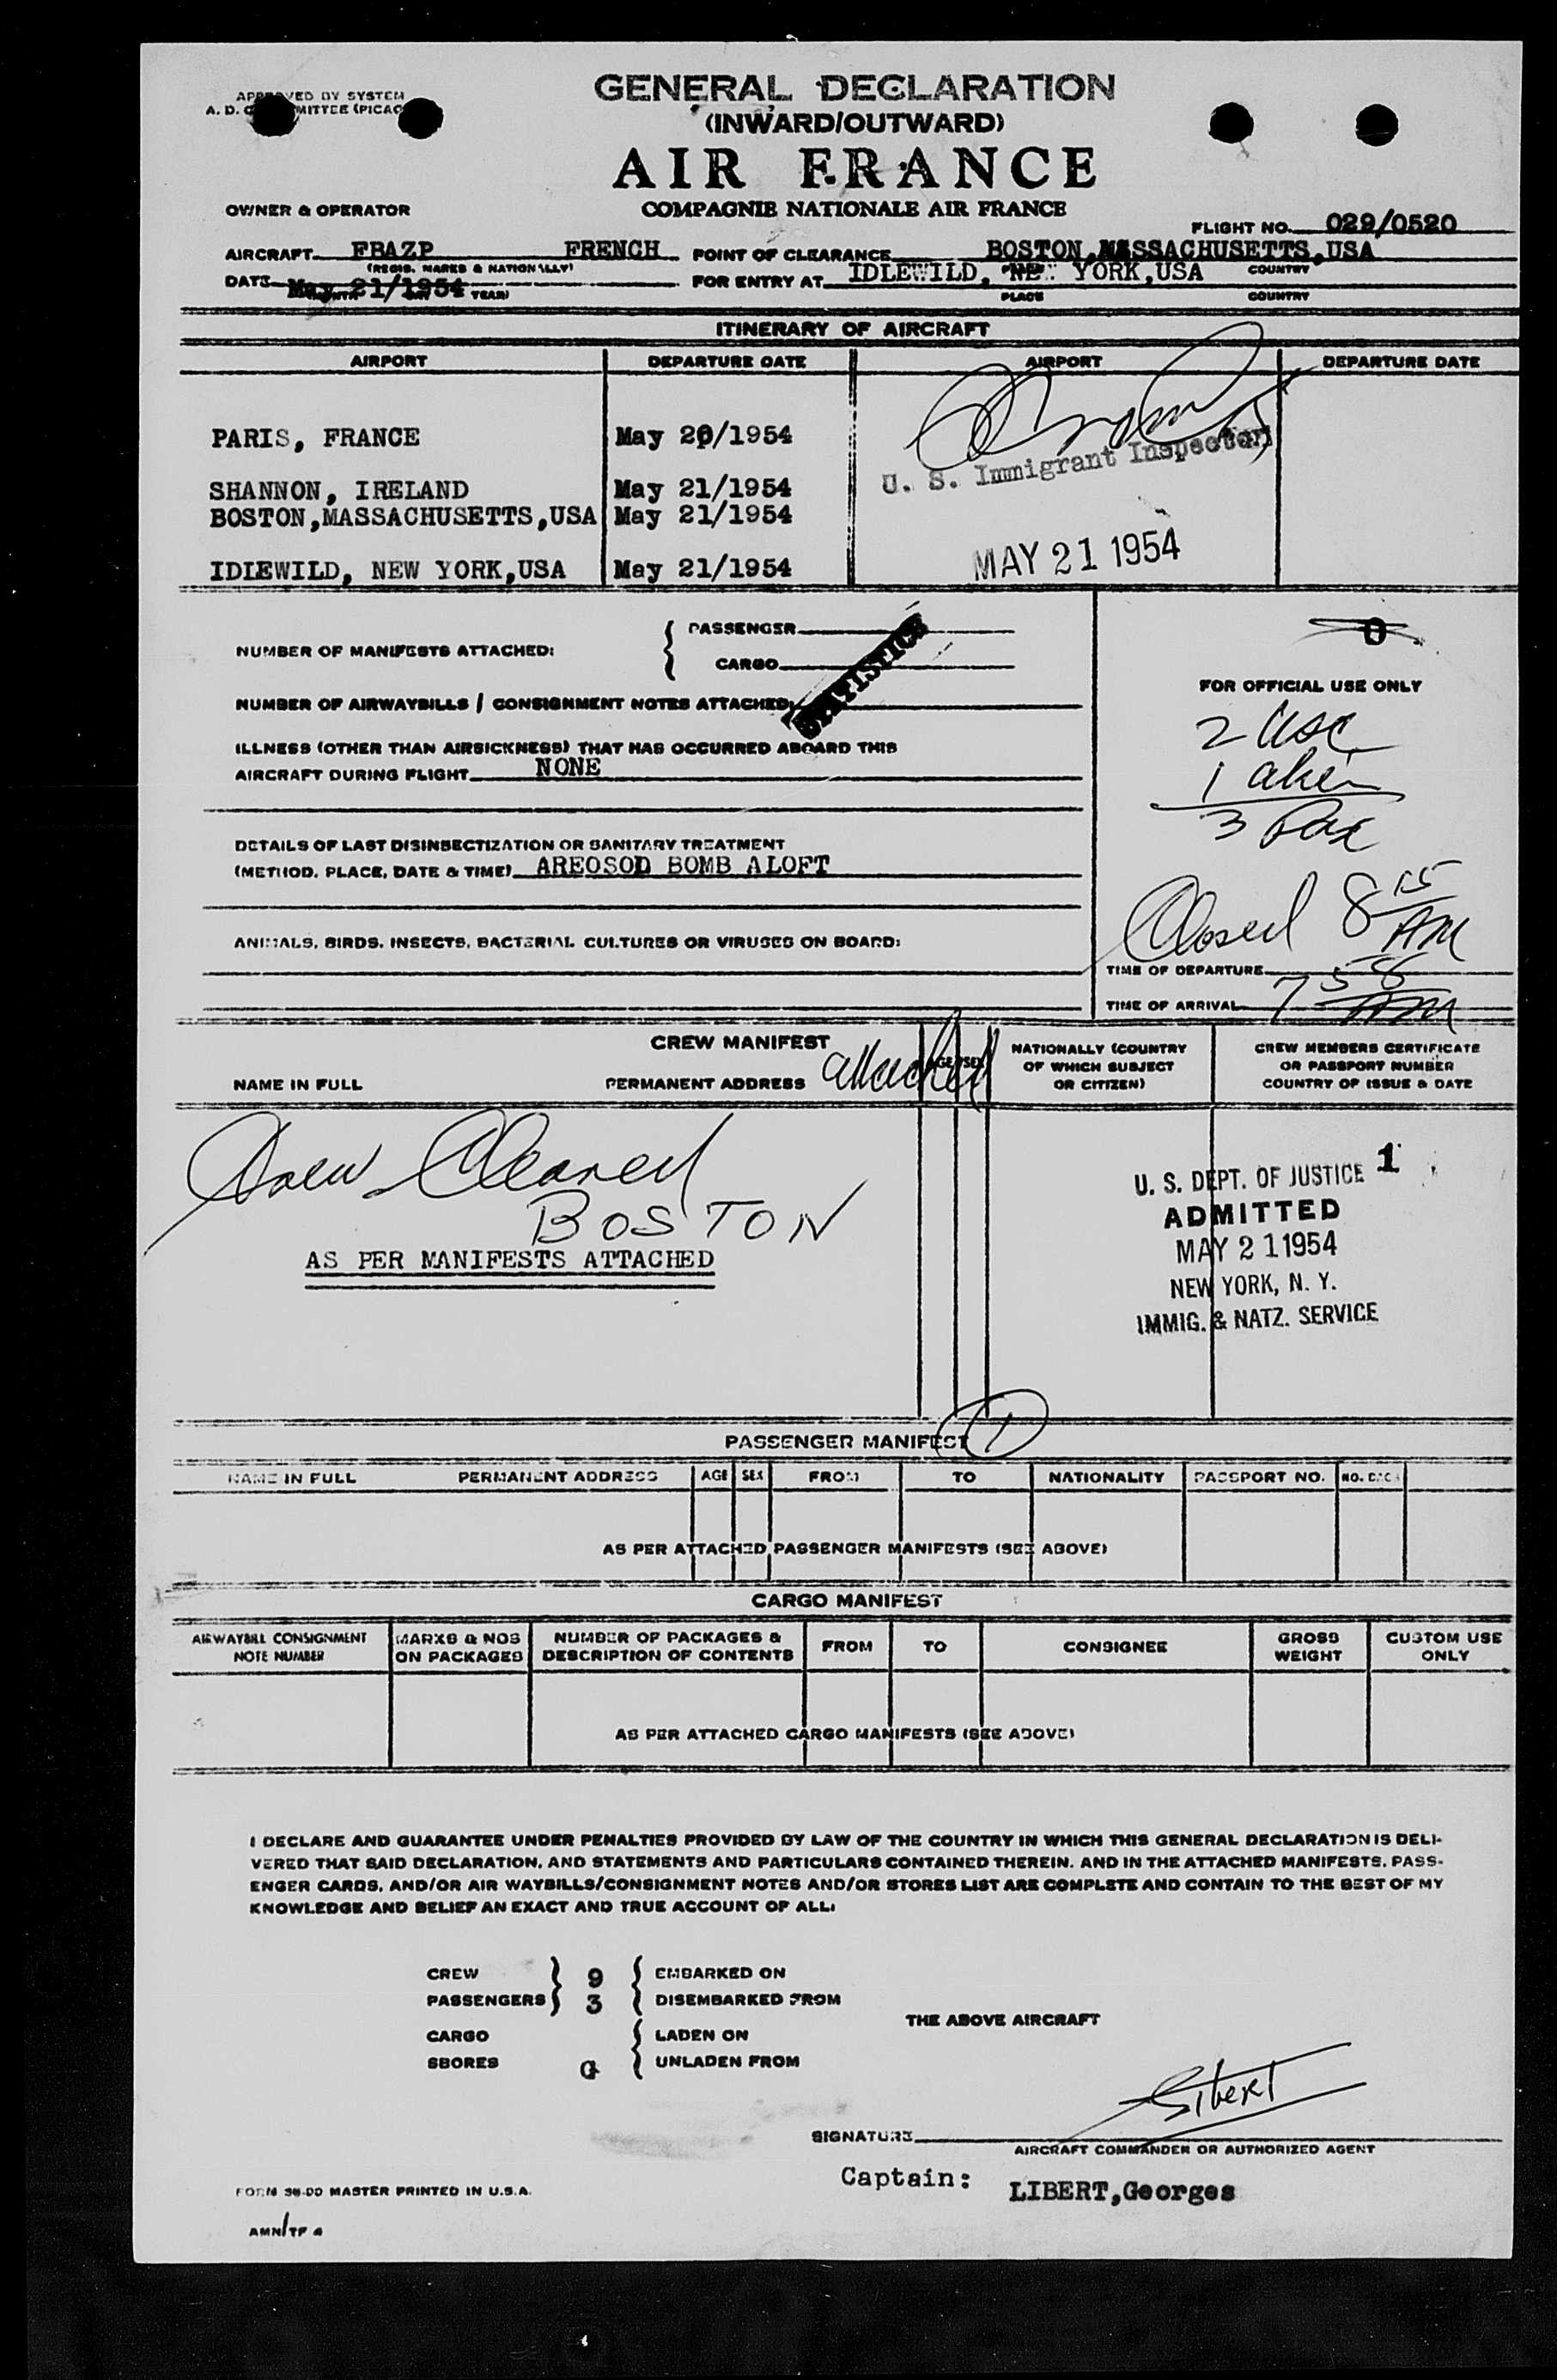 GENERAL DECLARATION
(INWARD/OUTWARD)
AIR FRANCE
COMPAGNIE NATIONALE AIR FRANCE
OWNER & OPERATOR
FLIGHT NO. 029/0520
AIRCRAFT FBAZP FRENCH POINT OF CLEARANCE BOSTON,MASSACHUSETTS,USA
(REGIS. MARKS & NATIONALLY) COUNTRY
DATE May 21/1954 YEAR) FOR ENTRY AT IDLEWILD, NEW YORK,USA
PLACE COUNTRY
ITINERARY OF AIRCRAFT
AIRPORT DEPARTURE DATE AIRPORT DEPARTURE DATE
PARIS, FRANCE May 20/1954
U. S. Immigrant Inspector
SHANNON, IRELAND May 21/1954
BOSTON,MASSACHUSETTS,USA May 21/1954
MAY 21 1954
IDLEWILD, NEW YORK,USA May 21/1954
NUMBER OF MANIFESTS ATTACHED: PASSENGER
CARGO
STATISTICS
0
FOR OFFICIAL USE ONLY
NUMBER OF AIRWAYBILLS / CONSIGNMENT NOTES ATTACHED:
2 USC
ILLNESS (OTHER THAN AIRSICKNESS) THAT HAS OCCURRED ABOARD THIS
AIRCRAFT DURING FLIGHT NONE
1 alien
3 Pax
DETAILS OF LAST DISINSECTIZATION OR SANITARY TREATMENT
(METHOD, PLACE, DATE & TIME) AREOSOD BOMB ALOFT
Closed 8 15 AM
ANIMALS, BIRDS, INSECTS, BACTERIAL CULTURES OR VIRUSES ON BOARD:
TIME OF DEPARTURE
TIME OF ARRIVAL 7 58 AM
CREW MANIFEST
attached
NAME IN FULL PERMANENT ADDRESS AGE SEX NATIONALLY (COUNTRY OF WHICH SUBJECT OR CITIZEN) CREW MEMBERS CERTIFICATE OR PASSPORT NUMBER COUNTRY OF ISSUE & DATE
Crew Cleared
BOSTON
AS PER MANIFESTS ATTACHED
U. S. DEPT. OF JUSTICE 1
ADMITTED
MAY 21 1954
NEW YORK, N. Y.
IMMIG. & NATZ. SERVICE
PASSENGER MANIFEST 1
NAME IN FULL PERMANENT ADDRESS AGE SEX FROM TO NATIONALITY PASSPORT NO.
AS PER ATTACHED PASSENGER MANIFESTS (SEE ABOVE)
CARGO MANIFEST
AIRWAYBILL CONSIGNMENT NOTE NUMBER MARKS & NOS ON PACKAGES NUMBER OF PACKAGES & DESCRIPTION OF CONTENTS FROM TO CONSIGNEE GROSS WEIGHT CUSTOM USE ONLY
AS PER ATTACHED CARGO MANIFESTS (SEE ABOVE)
I DECLARE AND GUARANTEE UNDER PENALTIES PROVIDED BY LAW OF THE COUNTRY IN WHICH THIS GENERAL DECLARATION IS DELI-
VERED THAT SAID DECLARATION, AND STATEMENTS AND PARTICULARS CONTAINED THEREIN, AND IN THE ATTACHED MANIFESTS, PASS-
ENGER CARDS, AND/OR AIR WAYBILLS/CONSIGNMENT NOTES AND/OR STORES LIST ARE COMPLETE AND CONTAIN TO THE BEST OF MY
KNOWLEDGE AND BELIEF AN EXACT AND TRUE ACCOUNT OF ALL:
CREW 9 EMBARKED ON
PASSENGERS 3 DISEMBARKED FROM
THE ABOVE AIRCRAFT
CARGO LADEN ON
SBORES G UNLADEN FROM
Libert
SIGNATURE
AIRCRAFT COMMANDER OR AUTHORIZED AGENT
Captain: LIBERT,Georges
MASTER PRINTED IN U.S.A.
AMN/TF 4